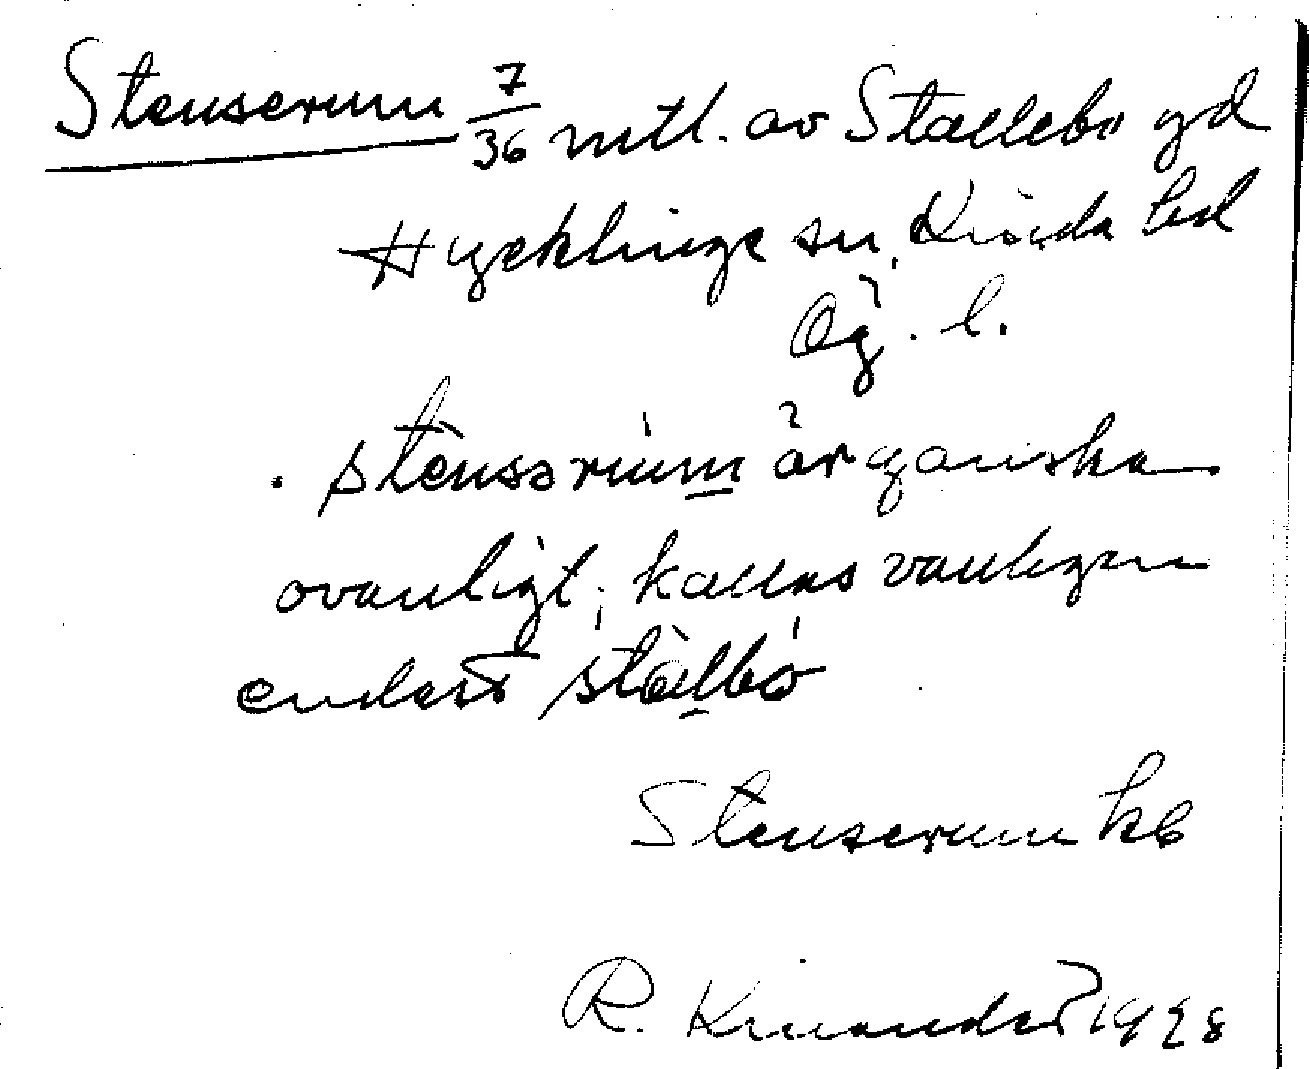 Stenserum 7/36 mtl. av Stallebo gd
Hycklinge sn, Kinda hd
Ög. l.
stènsərùm är ganska
ovanligt; kallas vanligen
endast stàlbó
Stenserum kb
R. Kinander 1928